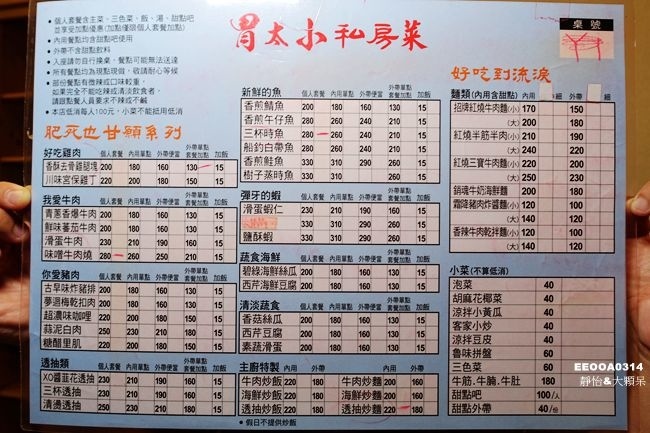 • 個人套餐含主菜、三色菜、飯、湯、甜點吧
並享受加點優惠(加點僅限個人套餐加點)
• 內用餐點均含甜點吧使用
• 外帶不含甜點飲料
• 入座請勿自行換桌，餐點可能無法送達
• 所有餐點均為現點現做，敬請耐心等候
• 部份餐點有微辣或口味較重，
如果完全不能吃辣或清淡飲食者，
請跟點餐人員要求不辣或不鹹
• 本店低消每人100元，小菜不能抵用低消
胃太小私房菜
桌號
肥死也甘願系列
好吃雞肉 個人套餐 內用單點 外帶便當 外帶單點套餐加點 加飯
香酥去骨雞腿塊 200 180 160 130 15
川味宮保雞丁 220 200 180 150 15
我愛牛肉 個人套餐 內用單點 外帶便當 外帶單點套餐加點 加飯
青蔥香爆牛肉 230 210 190 160 15
鮮味蕃茄牛肉 230 210 190 160 15
滑蛋牛肉 230 210 190 160 15
味噌牛肉燒 280 260 250 210 15
你愛豬肉 個人套餐 內用單點 外帶便當 外帶單點套餐加點 加飯
古早味炸豬排 200 180 160 130 15
夢迴梅乾扣肉 200 180 160 130 15
超濃味咖哩 220 200 180 150 15
蒜泥白肉 250 230 210 180 15
糖醋里肌 220 200 180 150 15
透抽類 個人套餐 內用單點 外帶便當 外帶單點套餐加點 加飯
XO醬韮花透抽 250 230 210 180 15
三杯透抽 230 210 190 160 15
清燙透抽 250 230 210 180 15
新鮮的魚 個人套餐 內用單點 外帶便當 外帶單點套餐加點 加飯
香煎鯖魚 200 180 160 130 15
香煎午仔魚 280 260 240 210 15
三杯時魚 280 260 240 210 15
船釣白帶魚 280 260 240 210 15
香煎鮭魚 330 310 290 260 15
樹子蒸時魚 330 310 260 15
彈牙的蝦 個人套餐 內用單點 外帶便當 外帶單點套餐加點 加飯
滑蛋蝦仁 230 210 190 160 15
330 310 290 260 15
鹽酥蝦 330 310 290 260 15
蔬食海鮮 個人套餐 內用單點 外帶便當 外帶單點套餐加點 加飯
碧綠海鮮絲瓜 220 200 180 150 15
西芹海鮮豆腐 220 200 180 150 15
清淡蔬食 個人套餐 內用單點 外帶便當 外帶單點套餐加點 加飯
香菇絲瓜 200 180 160 130 15
西芹豆腐 200 180 160 130 15
素蔬滑蛋 200 180 160 130 15
主廚特製 內用 外帶 內用 外帶
牛肉炒飯 220 180 牛肉炒麵 200 160
海鮮炒飯 220 180 海鮮炒麵 200 160
透抽炒飯 220 180 透抽炒麵 220 180
• 假日不提供炒飯
好吃到流淚
麵類(內用含甜點) 內用 細 外帶 細
招牌紅燒牛肉麵(小) 170 150
(大) 200 180
紅燒半筋半肉(小) 210 190
(大) 240 220
紅燒三寶牛肉麵(小) 220 200
(大) 250 230
銷魂牛奶海鮮麵 200 180
霜降豬肉炸醬麵(小) 120 100
(大) 140 120
香辣牛肉乾拌麵(小) 120 100
(大) 140 120
小菜(不算低消)
泡菜 40
胡麻花椰菜 40
涼拌小黃瓜 40
客家小炒 40
涼拌豆皮 40
魯味拼盤 60
三色菜 60
牛筋.牛腩.牛肚 180
甜點吧 100/人
甜點外帶 40/份
EEOOA0314
靜怡&大顆呆